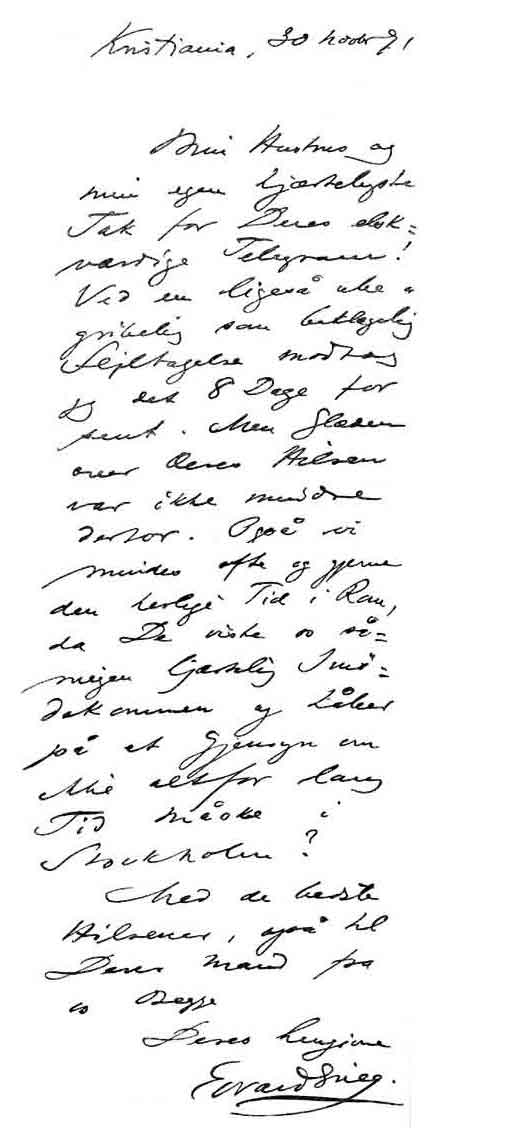 Kristiania, 30 Novbr 91
Min Hustrus og
min egen hjærteligste
Tak for Deres elsk=
værdige Telegram!
Ved en ligeså ube=
gribelig som beklagelig
Fejltagelse modtog
jeg det 8 Dage for
sent. Men Glæden
over Deres Hilsen
var ikke mindre
derfor. Også vi
mindes ofte og gjerne
den herlige Tid i Rom,
da De viste os så=
megen hjærtelig Imø=
dekommen og håber
på et Gjensyn om
ikke altfor lang
Tid måske i
Stockholm?
Med de bedste
Hilsener, også til
Deres Mand fra
os Begge
Deres hengivne
Edvard Grieg.